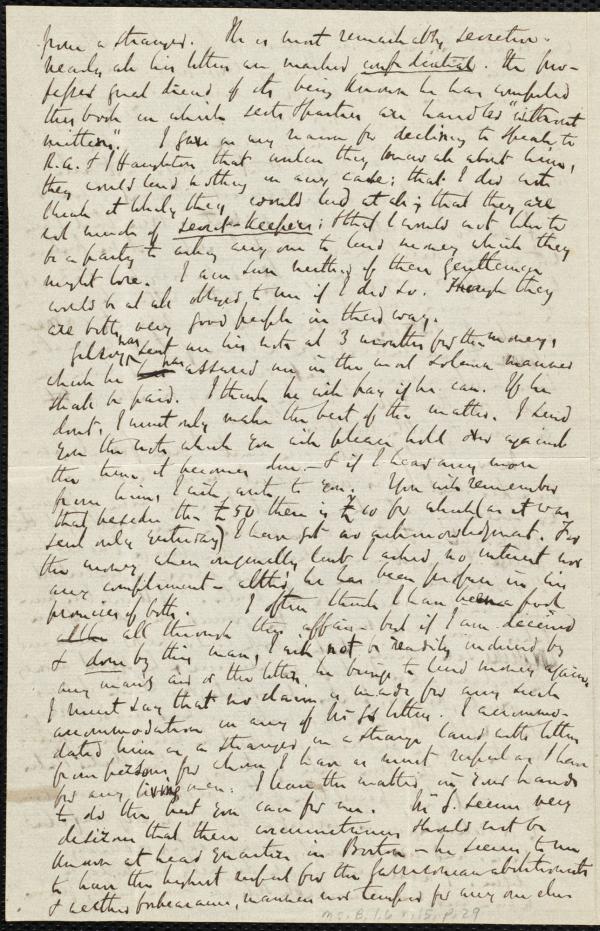 from a stranger. He is most remarkably secretive.
nearly all his letters are marked confidential. He pro-
fesses great dread of its being known he has compiled
this book in which sects & parties are handled "without
mittens". I gave as my reason for declining to speak to
R.A. & J Haughton that unless they knew all about him,
they would lend nothing in any case; that I did not
think it likely they would lend at all; that they are
not much of secret-keepers; & that I would not like to
be a party to asking any one to lend money which they
might lose. I am sure neither of these gentlemen
would be at all obliged to me if I did so. Though they
are both very good people in their way.
sent me his note at 3 months for the money,
which he has assured me in the most solemn manner
shall be paid. I think he will pay if he can. If he
dont, I must only make the best of the matter. I send
you the note which you will please hold over against
the time it becomes due - & if I hear any more
from him, I will write to you. You will remember
that besides the £50 there is £10 for which (as it was
sent only yesterday) I have got no acknowledgment. For
the money when originally lent I asked no interest nor
any compliment - altho' he has been profuse in his
promises of both. I often think I have been a fool
all through this affair - but if I am deceived
& done by this man, I will not be readily induced by
any man's aid or the letters he brings to lend money again.
I must say that no claim is made for any such
accommodation in any of his letters. I accommo-
dated him as a stranger in a strange land with letters
from persons for whom I have as much respect as I have
for any living men. I leave the matter in your hands
to do the best you can for me. Mr G. seems very
desirous that these circumstances should not be
known at head quarters in Boston - he seems to me
to have the highest respect for the Garrisonian abolitionists
& neither forbearance, manners nor temper for any one else
ms. B. 1.6 v.15, p. 29